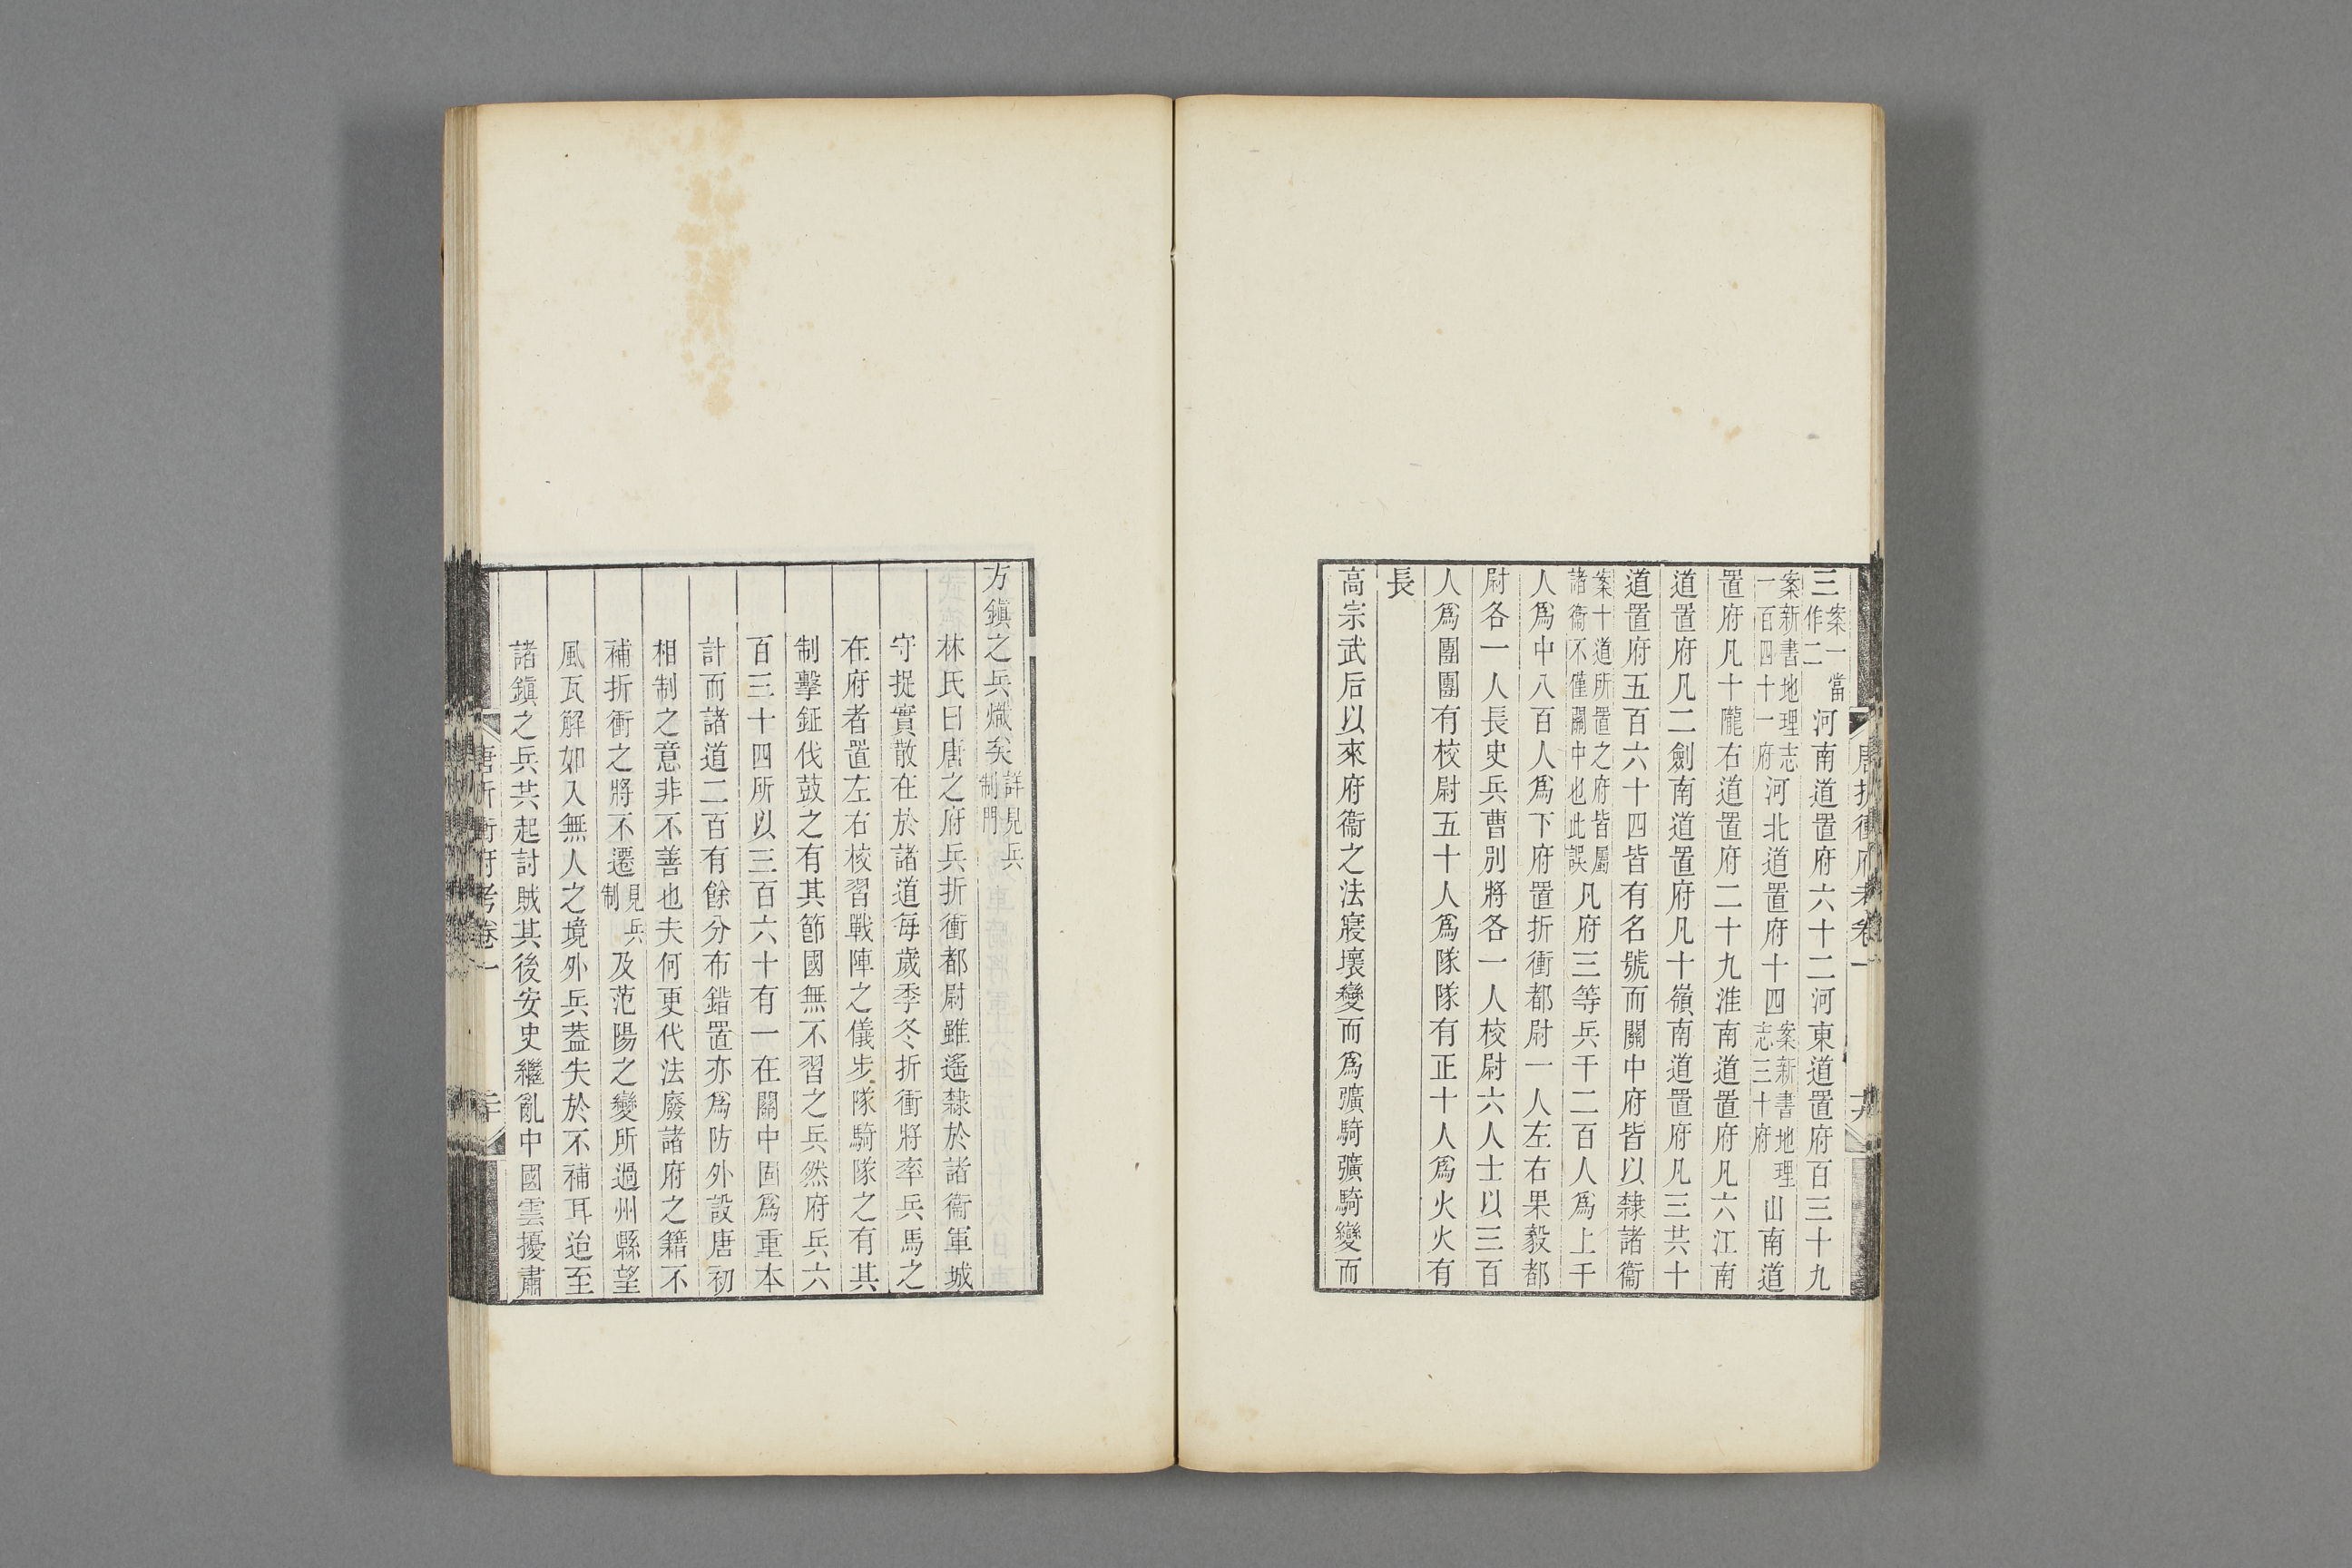 三案一當作二河南道置府六十二河東道置府百三十九
案新書地理志一百四十一府河北道置府十四案新書地理志三十府山南道
置府凡十隴右道置府二十九淮南道置府凡六江南
道置府凡二劍南道置府凡十嶺南道置府凡三共十
道置府五百六十四皆有名號而關中府皆以隸諸衞
案十道所置之府皆屬諸衞不僅關中也此誤凡府三等兵千二百人爲上千
人爲中八百人爲下府置折衝都尉一人左右果毅都
尉各一人長史兵曹別將各一人校尉六人士以三百
人爲團團有校尉五十人爲隊隊有正十人爲火火有
長
高宗武后以來府衞之法寖壞變而爲彍騎彍騎變而
唐折衝府考卷一
方鎭之兵熾矣詳見兵制門
林氏曰唐之府兵折衝都尉雖遙隸於諸衞軍城
守捉實散在於諸道每歲季冬折衝將率兵馬之
在府者置左右校習戰陣之儀步隊騎隊之有其
制擊鉦伐鼓之有其節國無不習之兵然府兵六
百三十四所以三百六十有一在關中固爲重本
計而諸道二百有餘分布錯置亦爲防外設唐初
相制之意非不善也夫何更代法廢諸府之籍不
補折衝之將不遷見兵制及范陽之變所過州縣望
風瓦解如入無人之境外兵蓋失於不補耳迨至
諸鎭之兵共起討賊其後安史繼亂中國雲擾肅
唐折衝府考卷一
二十